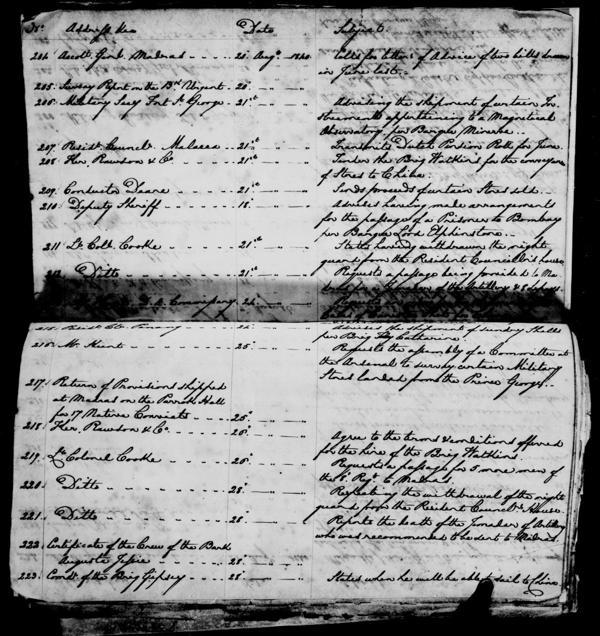 No. Address &ca Date Subject
204. Accott. Genl. Madras 20 Augt. 1840 Calls for letters of Advice of two bills drawn
in June last
205. Survey Report on the Urgent 20
206. Military Secy Fort St. George 21st Advising the shipment of certain In
struments appertaining to a Magnetical
Observatory per Barque Minerva
207. Residt. Councr. Malacca 21st Transmits Dated Pension Roll for June
208. Fer. Rawson & Co. 21st Tenders the Brig Watkins for the conveyance
of Stores to China
209. Conductor Deane 21st Sends proceeds of certain Stores sold
210. Deputy Sheriff 18 Advises having made arrangements
for the passage of a Prisoner to Bombay
per Barque Lord Elphinstone
211. Lt. Coll. Cooke 21st States having withdrawn the night
guard from the Resident Councillor's house
212. Ditto 21st Requests a passage being provided to Ma
of the Artillery &
Commissary 24 Requests
215. Residt. Penang 22 Advises the shipment of sundry
per Brig Catharine
216. Mr. 25 Requests the assembly of a Committee at
the Arsenal to survey certain Military
Stores landed from the Prince George
217. Return of Provisions shipped
at Madras on the Hall
for 17 Native Convicts 25
218. Fer. Rawson & Co. 25 Agree to the terms & conditions offered
for the hire of the Brig Watkins
219. Lt. Colonel Cooke 26 Requests a passage for 5 more men of
the 8 Rgt. to Madras
220. Ditto 28 Repeating the withdrawal of the night
guard from the Resident Councrs. House
221. Ditto 28 Reports the death of the Jemadar of Artillery
who was recommended to be sent to Madras
222. Certificate of the Crew of the Bark
Augusta Jessie 28
223. Comdr. of the Brig Gipsey 28 States when he will be able to sail to China